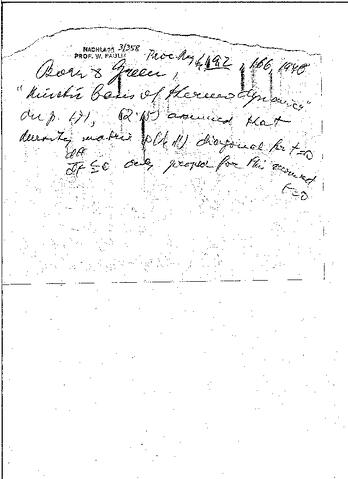 NACHLASS 3/358
PROF. W. PAULI
Proc. Roy. 192, 166, 1948
Born & Green,
"Kinetic basis of thermodynamics"
On p. 171, (2.15) assumed that
density matrix diagonal for t=0
only proved for this moment
t=0